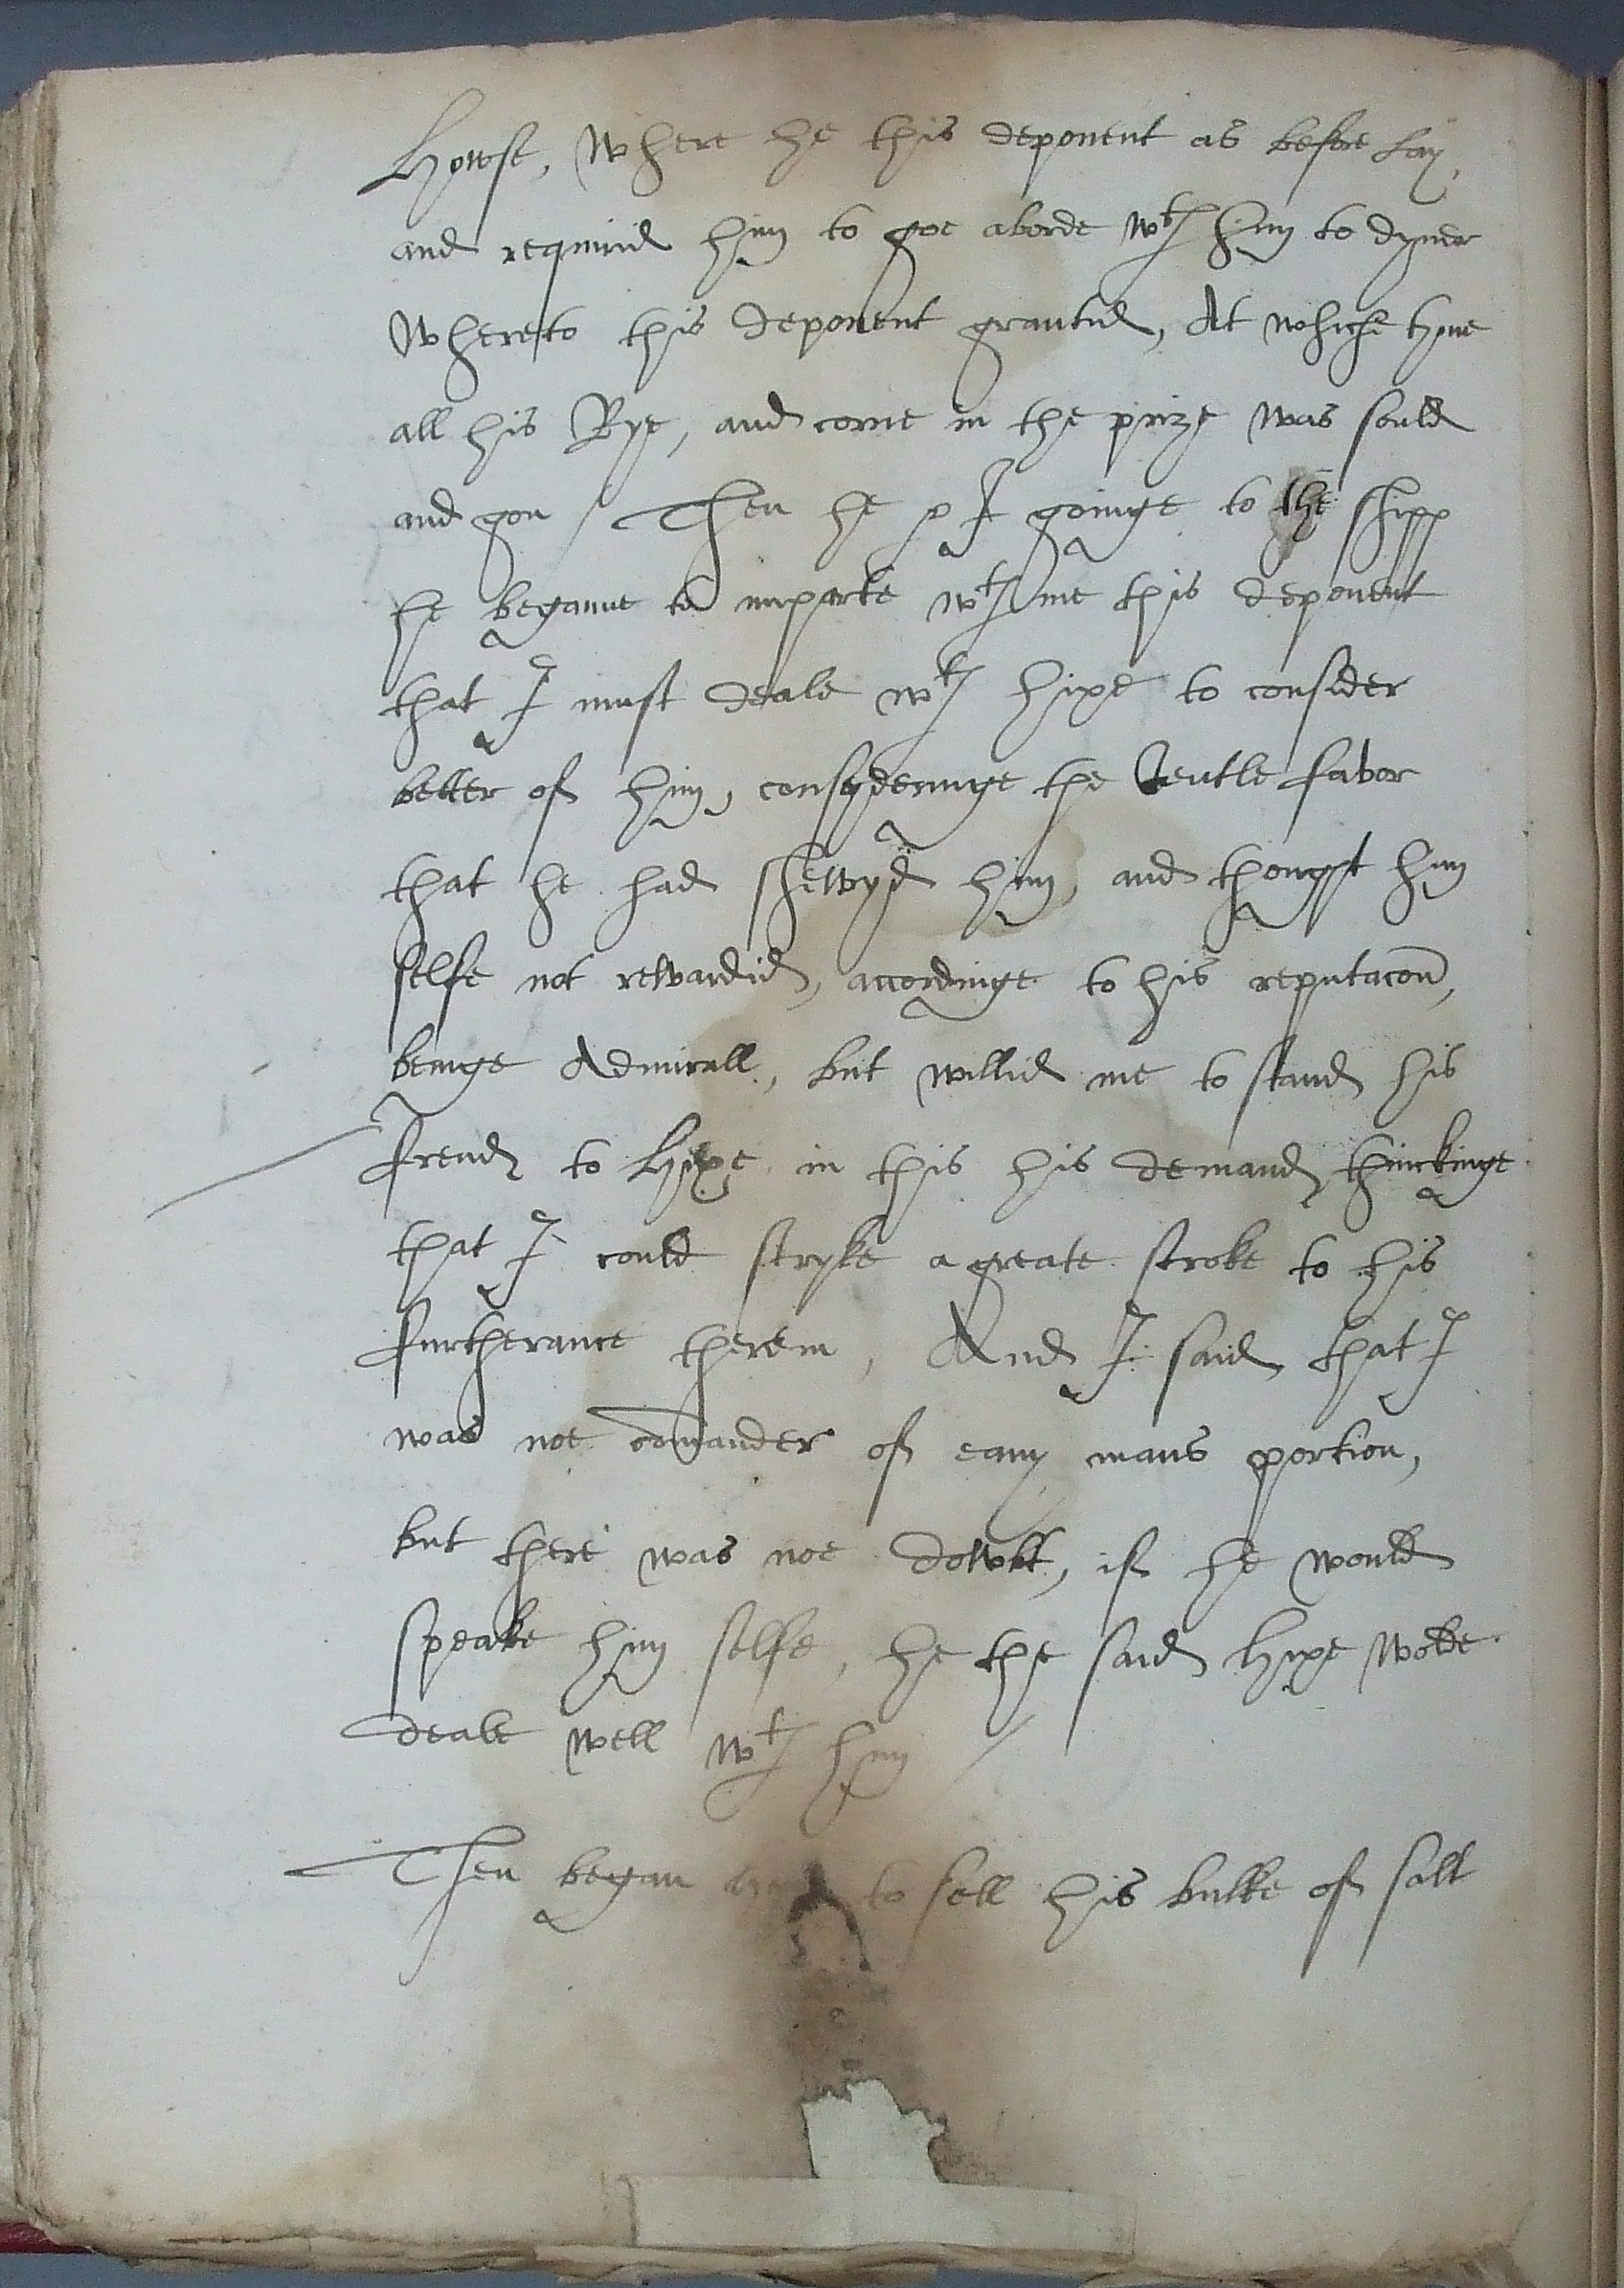 Howse, where he this deponent as before Lay,
and requirid him to goe aborde wth him to dyner
Whereto this deponent grantid, At whiche tyme
all his Rye, and corne in the prize was sould
and gon / Then he & I goinge to the shipp
he beganne to imparte wth me this deponent
that I must deale wth hipe to consider
better of him, consyderinge the Gentle favor
that he had shewyd him, and thought him
selfe not rewardid, accordinge to his reputacon,
beinge Admirall, but willid me to stand his
frend to Hipe in this his demand, thinckinge
that I could stryke a greate stroke to his
furtherance therein, And I said that I
was not comander of eany mans portion,
but there was noe dowbt, if he would
speake him selfe, he the said hipe wolde
deale well wth him /
Then began to sell his bulke of salt